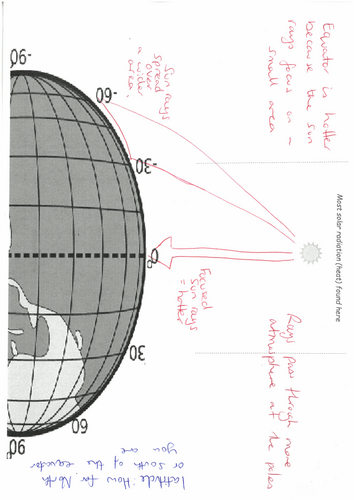 Equator is hotter
because the sun
rays focus on a
small area
Sun rays
spread
over
a wider
area.
Most solar radiation (heat) found here
Focused
sun rays
= hotter
Rays pass through more
atmosphere at the poles
-90
-60
-30
0
30
60
90
latitude: How far North
or south of the equator
you are